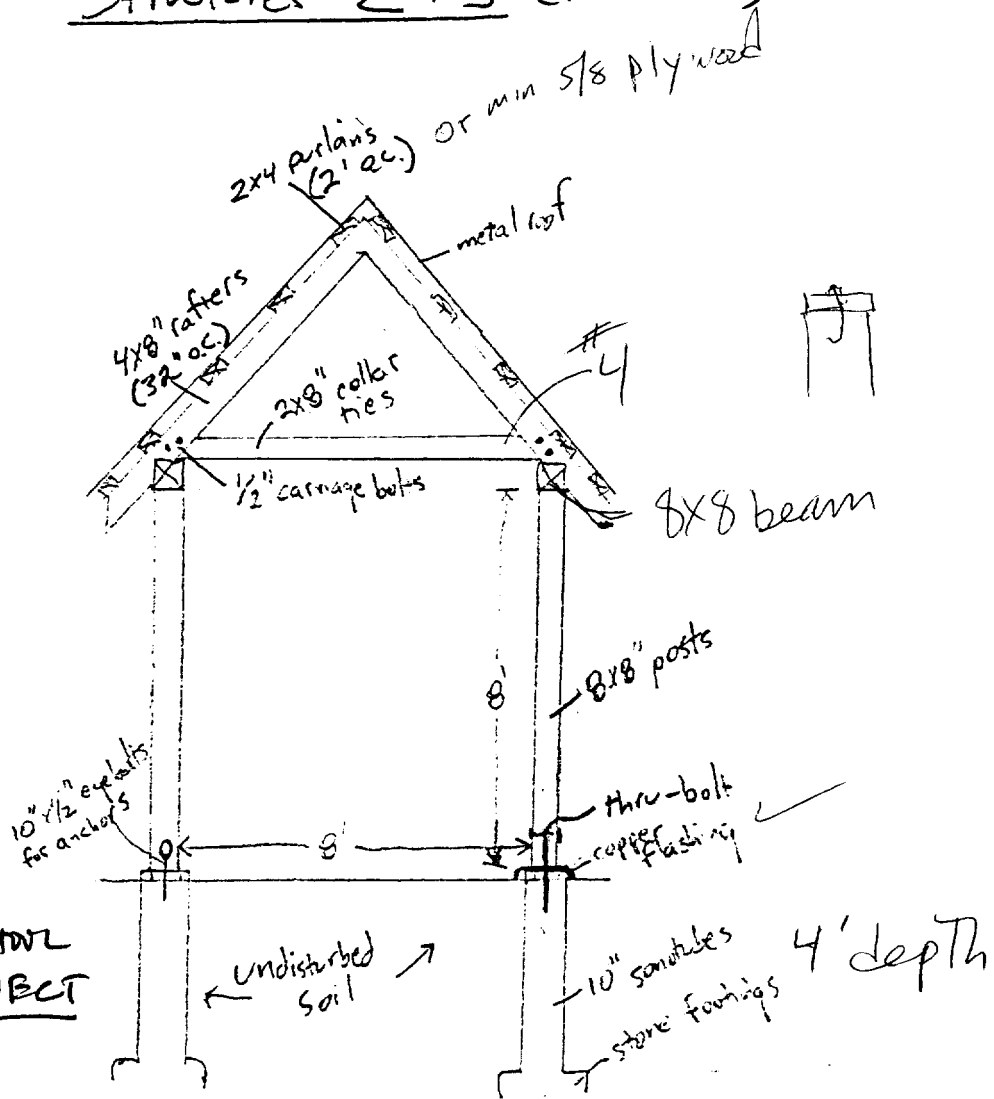 or min 5/8 plywood
2x4 purlains
(2' o.c.)
metal roof
4x8" rafters
(32" o.c.)
2x8" collar
ties
#4
1/2" carriage bolts
8x8 beam
8'
8x8" posts
10" x 1/2" eyebolts
for anchors
8'
thru-bolt
copper
flashing
undisturbed
soil
10" sonotubes
4' depth
stone footings